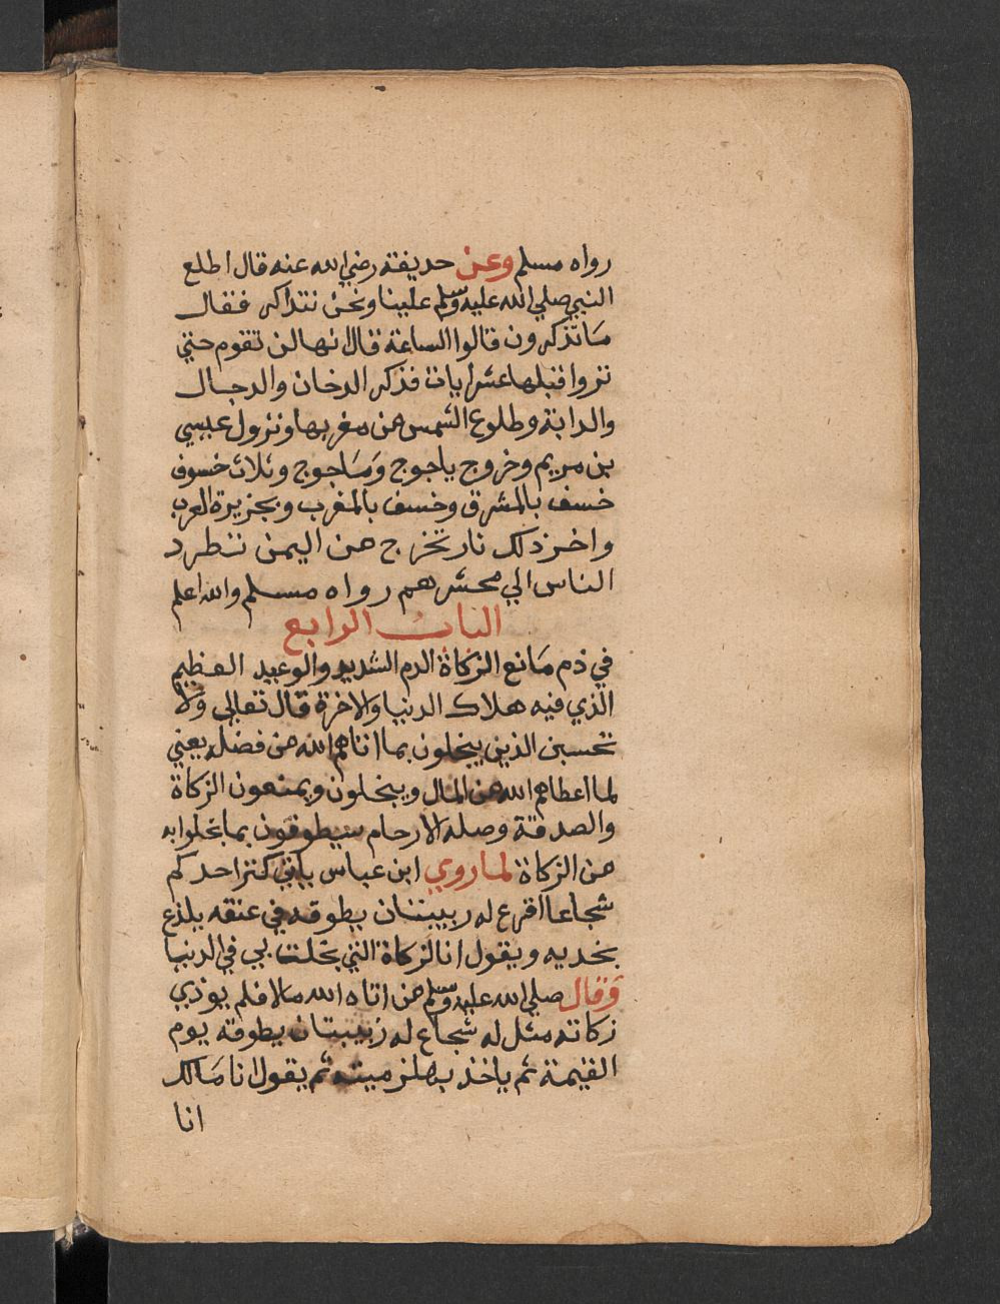 رواه مسلم وعن حديفة رضي الله عنه قال اطلع
النبي صلي الله عليه وسلم علينا ونحن نتداكر فقال
ما تذكرون قالوا الساعة قال انها لن تقوم حتي
تروا قبلها عشر ايات فذكر الدخان والدجال
والدابة وطلوع الشمس من مغربها ونزول عيسي
بن مريم وخروج ياجوج وماجوج وثلاث خسوف
خسف بالمشرق وخسف بالمغرب وبجزيرة العرب
واخر ذلك نار تخرج من اليمن تتطرد
الناس الي محشرهم رواه مسلم والله اعلم
الباب الرابع
في ذم مانع الزكاة الدم الشديد والوعيد العظيم
الذي فيه هلاك الدنيا والاخرة قال تعالي ولا
تحسبن الذين يبخلون بما اتاهم الله من فضله يعني
لما اعطاهم الله من المال ويبخلون ويمنعون الزكاة
والصدقة وصلة الارحام سيطوقون بما بخلوا به
من الزكاة لما روي ابن عباس ياتي كنز احدكم
شجاعا اقرع له ربيبتان يطوقه في عنقه يلذع
بخديه ويقول انا الزكاة التي بخلت بي في الدنيا
وقال صلي الله عليه وسلم من اتاه الله مالا فلم يوذي
زكاته مثل له شجاع له زبيبتان يطوقه يوم
القيمة ثم ياخذ بهلزميته ثم يقول انا مالك
انا